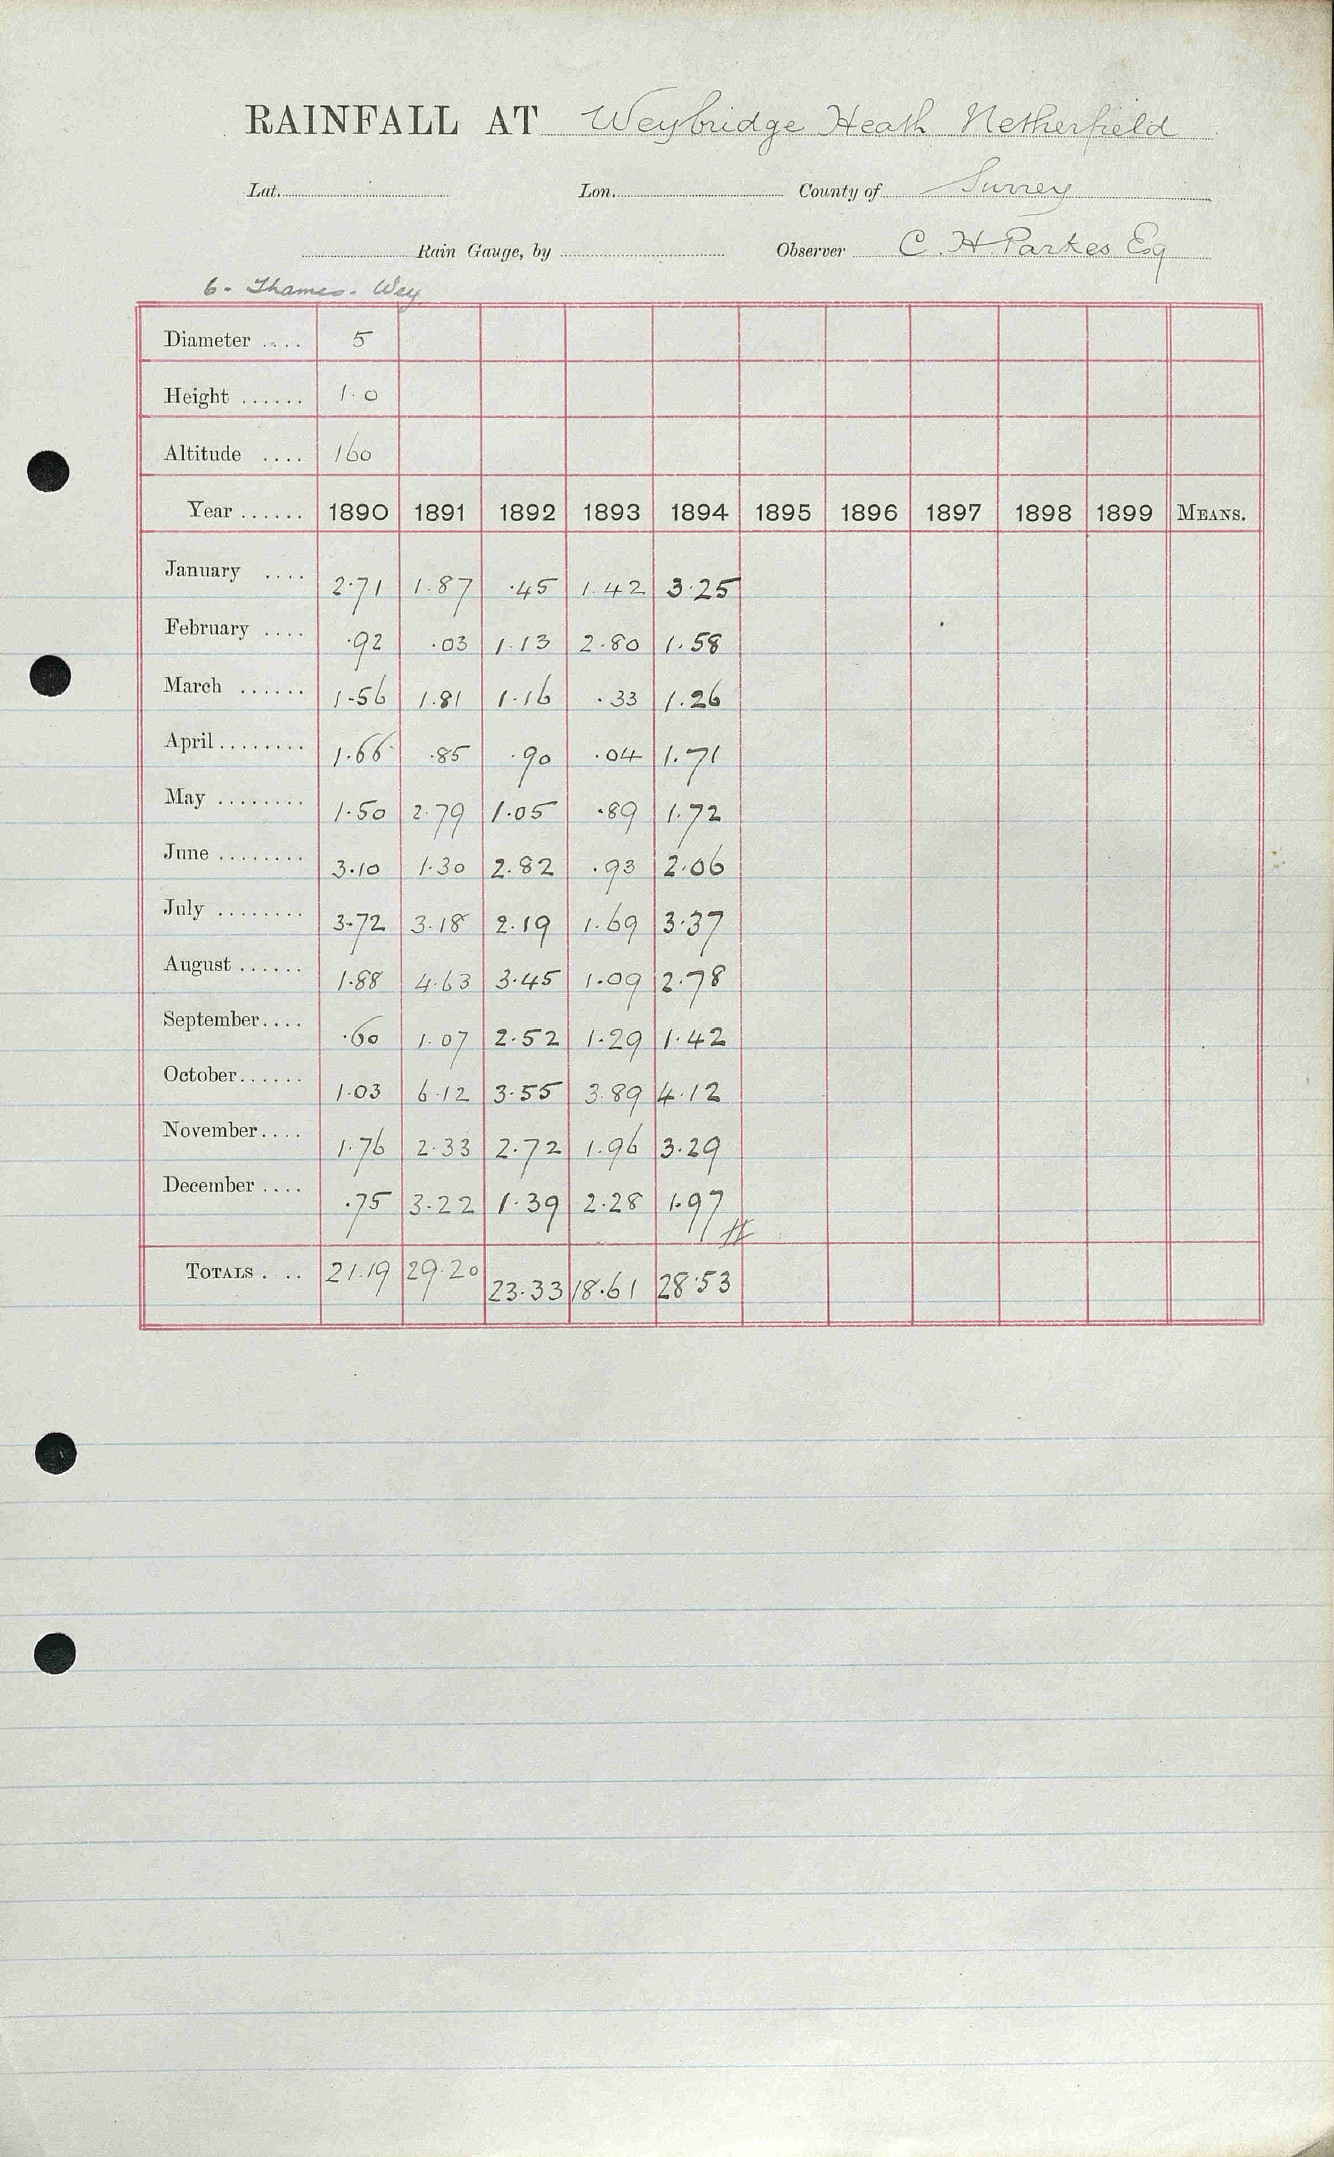 RAINFALL AT Weybridge Heath Netherfield
Lat. Lon. County of Surrey
Rain Gauge, by Observer C. H Parkes Esq
6. Thames. Wey
Diameter .... 5
Height ...... 1.0
Altitude .... 160
Year ...... 1890 1891 1892 1893 1894 1895 1896 1897 1898 1899 MEANS.
January .... 2.71 1.87 .45 1.42 3.25
February .... .92 .03 1.13 2.80 1.58
March ...... 1.56 1.81 1.16 .33 1.26
April ........ 1.66 .85 .90 .04 1.71
May ........ 1.50 2.79 1.05 .89 1.72
June ........ 3.10 1.30 2.82 .93 2.06
July ........ 3.72 3.18 2.19 1.69 3.37
August ...... 1.88 4.63 3.45 1.09 2.78
September.... .60 1.07 2.52 1.29 1.42
October...... 1.03 6.12 3.55 3.89 4.12
November.... 1.76 2.33 2.72 1.96 3.29
December .... .75 3.22 1.39 2.28 1.97
TOTALS .... 21.19 29.20 23.33 18.61 28.53